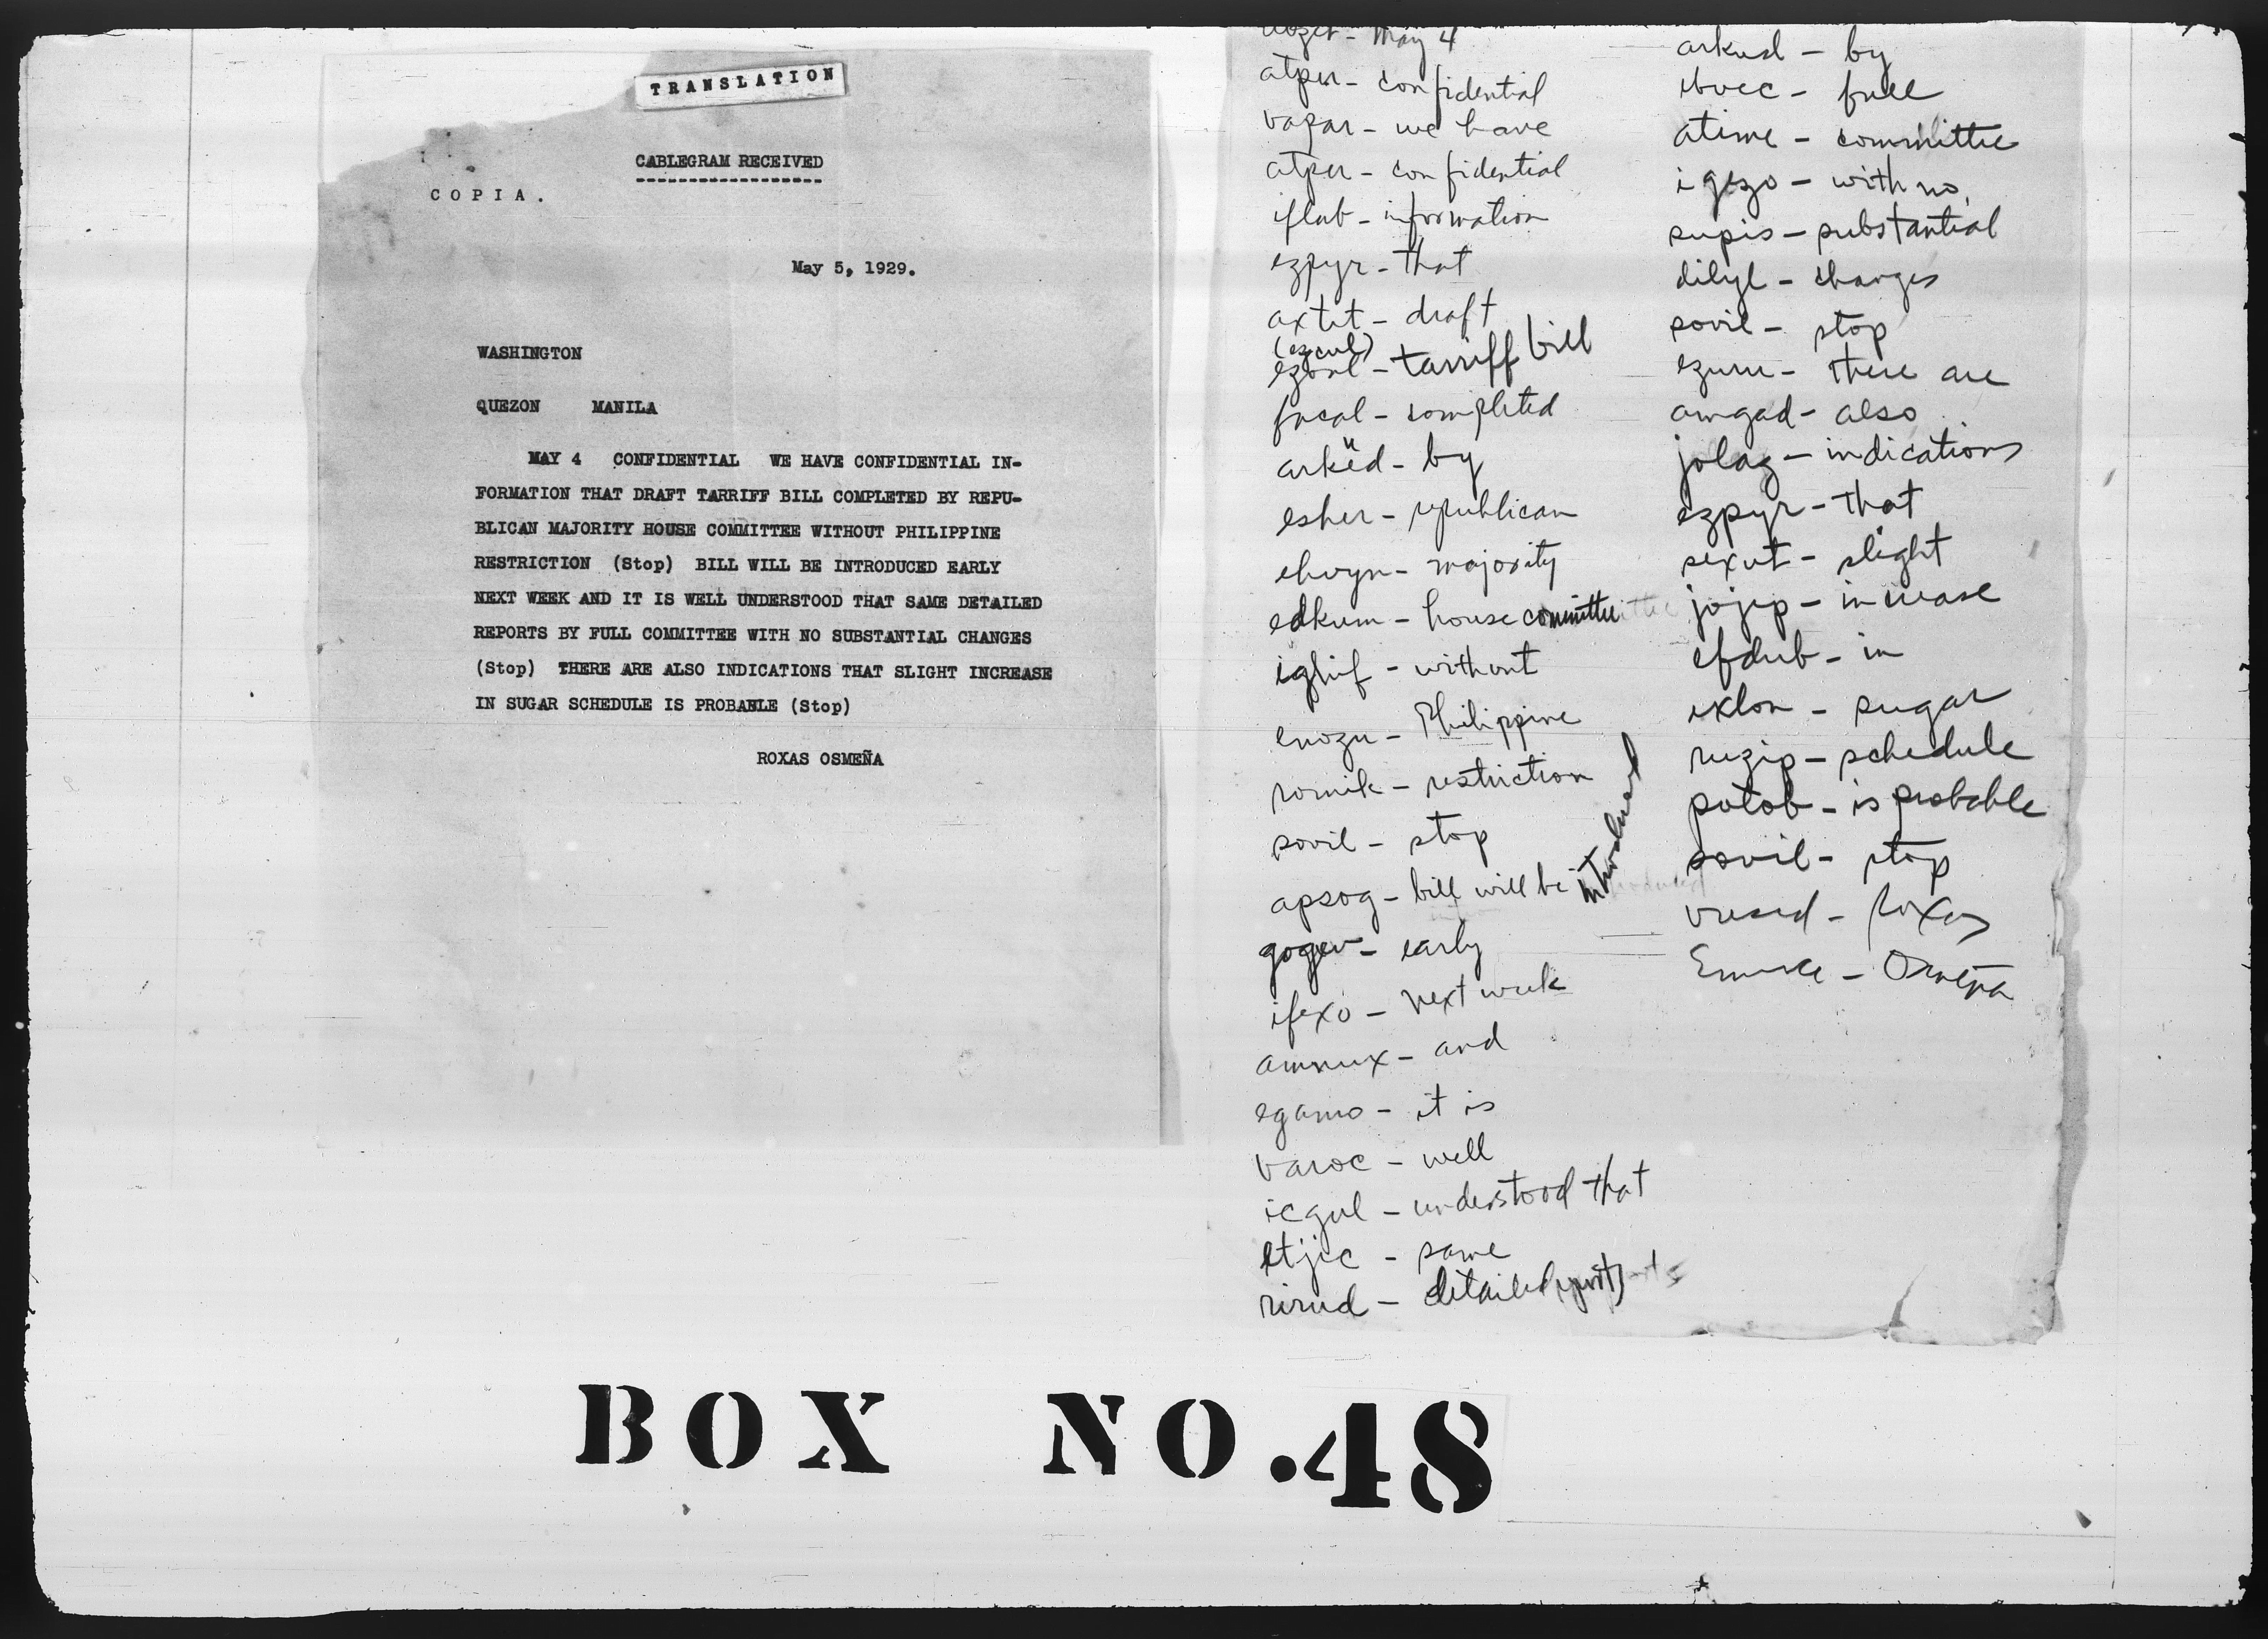 TRANSLATION
CABLEGRAM RECEIVED
COPIA.
May 5, 1929.
WASHINGTON
QUEZON MANILA
MAY 4 CONFIDENTIAL WE HAVE CONFIDENTIAL IN-
FORMATION THAT DRAFT TARRIFF BILL COMPLETED BY REPU-
BLICAN MAJORITY HOUSE COMMITTEE WITHOUT PHILIPPINE
RESTRICTION (Stop) BILL WILL BE INTRODUCED EARLY
NEXT WEEK AND IT IS WELL UNDERSTOOD THAT SAME DETAILED
REPORTS BY FULL COMMITTEE WITH NO SUBSTANTIAL CHANGES
(Stop) THERE ARE ALSO INDICATIONS THAT SLIGHT INCREASE
IN SUGAR SCHEDULE IS PROBABLE (Stop)
ROXAS OSMEÑA
- May 4
atper - confidential
vapar - we have
atper - confidential
iflub - information
ezpyr - that
axtet - draft
- tarriff bill
focal - completed
arkud - by
esher - republican
ehvyn - majority
edkum - house committee
ighif - without
enozu - Philippine
romik - restriction
sovil - stop
apsog - bill will be introduced
- early
ifexo - next week
amnux - and
egamo - it is
varoc - well
icgul - understood that
etjic - same
rirud - detailed reports
arkud - by
- full
atime - committee
igezo - with no
supis - substantial
dilyl - changes
sovil - stop
- there are
amgad - also
jolag - indications
ezpyr - that
sexut - slight
jojep - increase
efdub - in
exlon - sugar
ruzip - schedule
potob - is probable
sovil - stop
- Roxas
- Osmeña
BOX NO.48